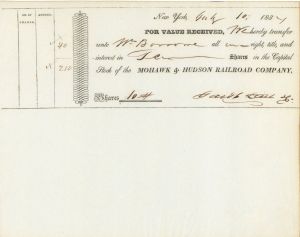 NO. OF SHARES. NUMBERS.
New York, July 10, 183
FOR VALUE RECEIVED, We hereby transfer
40 unto Wm all our right, title, and
interest in Ten Shares in the Capital
210 Stock of the MOHAWK & HUDSON RAILROAD COMPANY.
Shares, 10